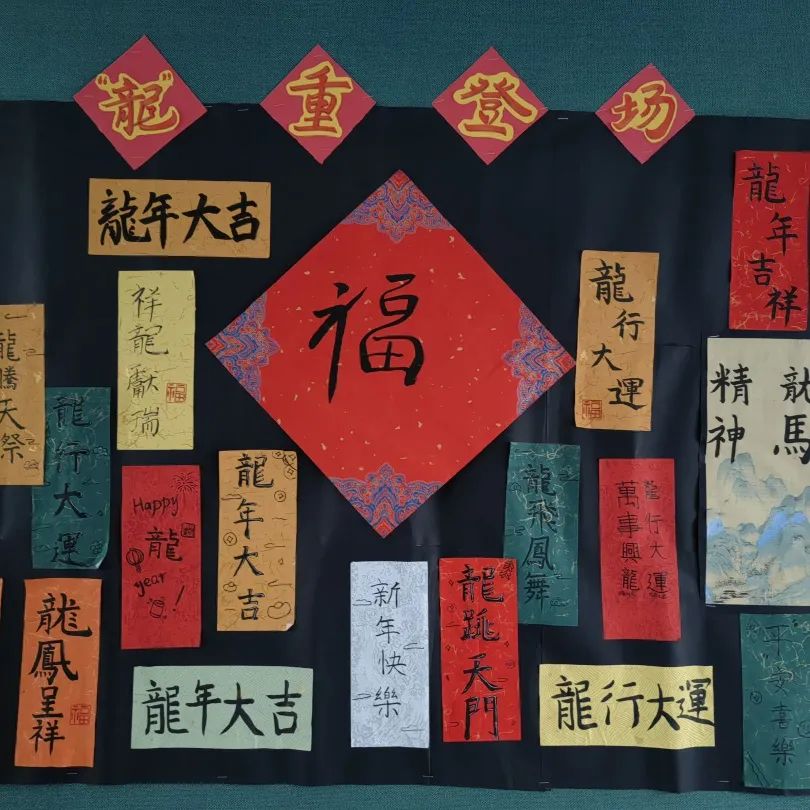 “龍”重登场
龍年大吉
福
龍年吉祥
祥龍獻瑞
福
龍行大運
福
龍騰天祭
龍行大運
龍馬
精神
Happy
龍
year!
龍年大吉
龍飛鳳舞
龍行大運
萬事興龍
龍鳳呈祥
福
新年快樂
龍跳天門
平安喜樂
龍年大吉
龍行大運